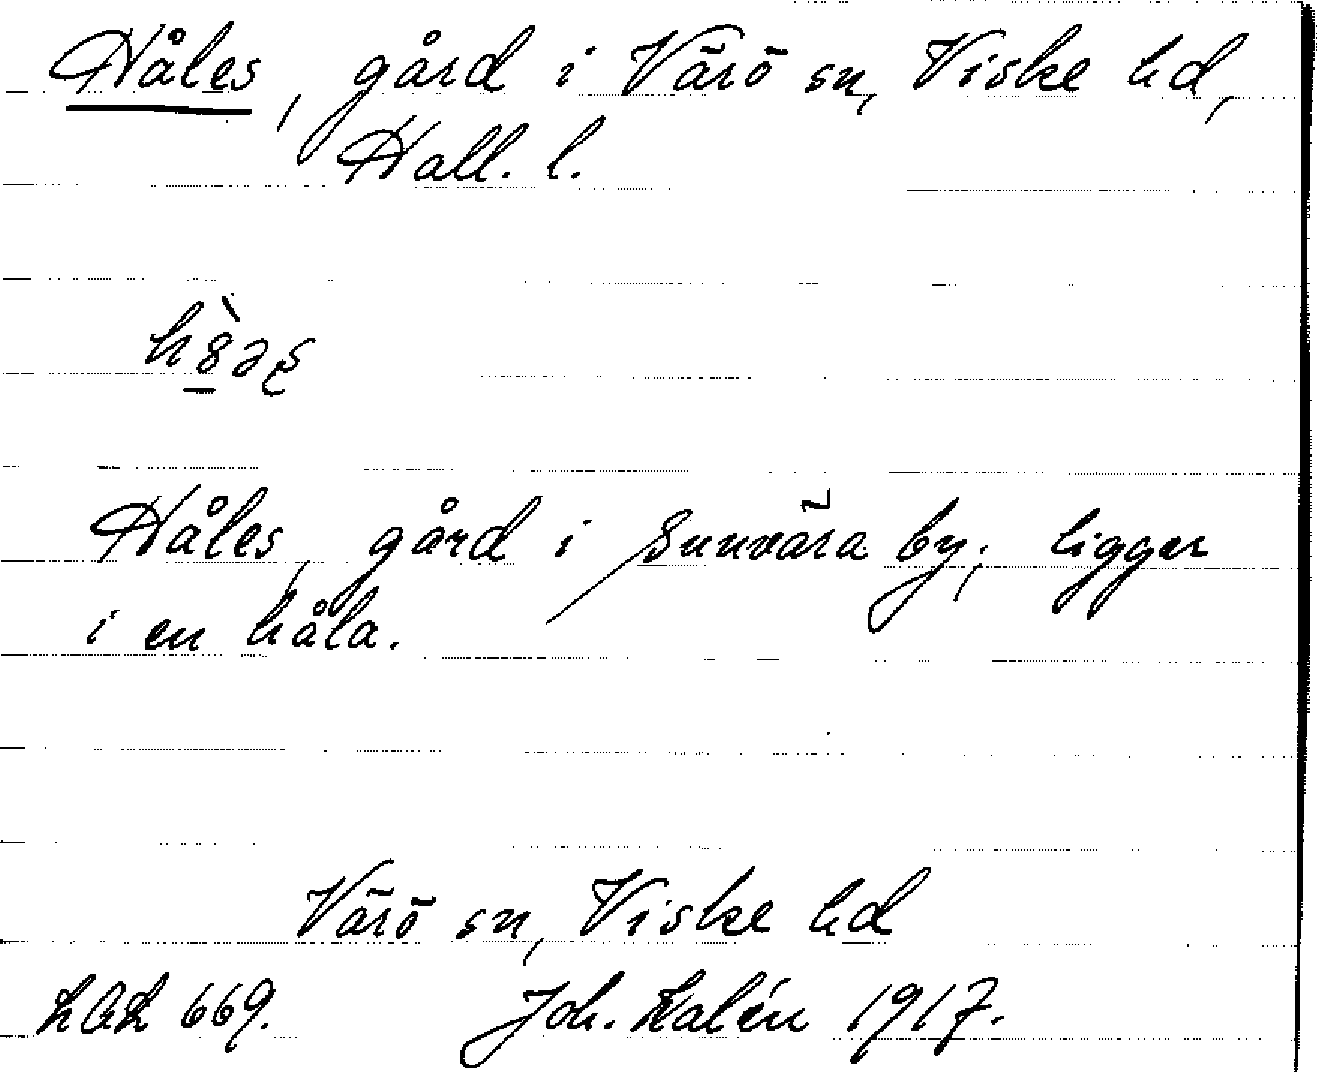 Håles, gård i Värö sn, Viske hd,
Hall. l.
Håles, gård i Sunnvära by; ligger
i en håla.
Värö sn, Viske hd
669. Joh. Kalén 1917.